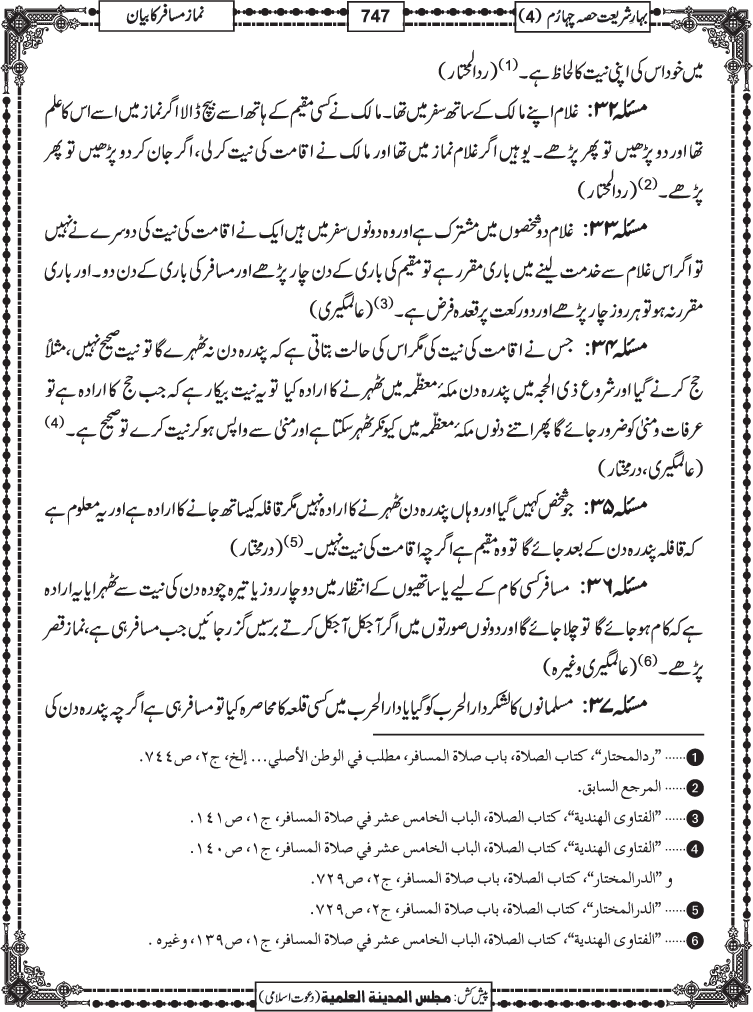 بہارِ شریعت حصہ چہارم (4)
747
نماز مسافر کا بیان
میں خود اس کی اپنی نیت کا لحاظ ہے۔(1) (ردالمحتار)
مسئلہ ۳۲: غلام اپنے مالک کے ساتھ سفر میں تھا۔ مالک نے کسی مقیم کے ہاتھ اسے بیچ ڈالا اگر نماز میں اسے اس کا علم
تھا اور دو پڑھیں تو پھر پڑھے۔ یوہیں اگر غلام نماز میں تھا اور مالک نے اقامت کی نیت کر لی، اگر جان کر دو پڑھیں تو پھر
پڑھے۔(2) (ردالمحتار)
مسئلہ ۳۳: غلام دو شخصوں میں مشترک ہے اور وہ دونوں سفر میں ہیں ایک نے اقامت کی نیت کی دوسرے نے نہیں
تو اگر اس غلام سے خدمت لینے میں باری مقرر ہے تو مقیم کی باری کے دن چار پڑھے اور مسافر کی باری کے دن دو۔ اور باری
مقرر نہ ہو تو ہر روز چار پڑھے اور دو رکعت پر قعدہ فرض ہے۔(3) (عالمگیری)
مسئلہ ۳۴: جس نے اقامت کی نیت کی مگر اس کی حالت بتاتی ہے کہ پندرہ دن نہ ٹھہرے گا تو نیت صحیح نہیں، مثلاً
حج کرنے گیا اور شروع ذی الحجہ میں پندرہ دن مکۂ معظّمہ میں ٹھہرنے کا ارادہ کیا تو یہ نیت بیکار ہے کہ جب حج کا ارادہ ہے تو
عرفات و منیٰ کو ضرور جائے گا پھر اتنے دنوں مکۂ معظّمہ میں کیونکر ٹھہر سکتا ہے اور منیٰ سے واپس ہو کر نیت کرے تو صحیح ہے۔(4)
(عالمگیری، درمختار)
مسئلہ ۳۵: جو شخص کہیں گیا اور وہاں پندرہ دن ٹھہرنے کا ارادہ نہیں مگر قافلہ کیساتھ جانے کا ارادہ ہے اور یہ معلوم ہے
کہ قافلہ پندرہ دن کے بعد جائے گا تو وہ مقیم ہے اگرچہ اقامت کی نیت نہیں۔(5) (درمختار)
مسئلہ ۳۶: مسافر کسی کام کے لیے یا ساتھیوں کے انتظار میں دو چار روز یا تیرہ چودہ دن کی نیت سے ٹھہرا یا یہ ارادہ
ہے کہ کام ہو جائے گا تو چلا جائے گا اور دونوں صورتوں میں اگر آجکل آجکل کرتے برسیں گزر جائیں جب بھی مسافر ہی ہے، نماز قصر
پڑھے۔(6) (عالمگیری وغیرہ)
مسئلہ ۳۷: مسلمانوں کا لشکر دارالحرب کو گیا یا دارالحرب میں کسی قلعہ کا محاصرہ کیا تو مسافر ہی ہے اگرچہ پندرہ دن کی
1 ...... ”ردالمحتار“، کتاب الصلاة، باب صلاة المسافر، مطلب في الوطن الأصلي... إلخ، ج۲، ص۷٤٤.
2 ...... المرجع السابق.
3 ...... ”الفتاوی الهندیة“، کتاب الصلاة، الباب الخامس عشر في صلاة المسافر، ج۱، ص۱٤۱.
4 ...... ”الفتاوی الهندیة“، کتاب الصلاة، الباب الخامس عشر في صلاة المسافر، ج۱، ص۱٤۰.
و ”الدرالمختار“، کتاب الصلاة، باب صلاة المسافر، ج۲، ص۷۲۹.
5 ...... ”الدرالمختار“، کتاب الصلاة، باب صلاة المسافر، ج۲، ص۷۲۹.
6 ...... ”الفتاوی الهندیة“، کتاب الصلاة، الباب الخامس عشر في صلاة المسافر، ج۱، ص۱۳۹، وغیرہ .
پیش کش: مجلس المدينة العلمية (دعوت اسلامی)